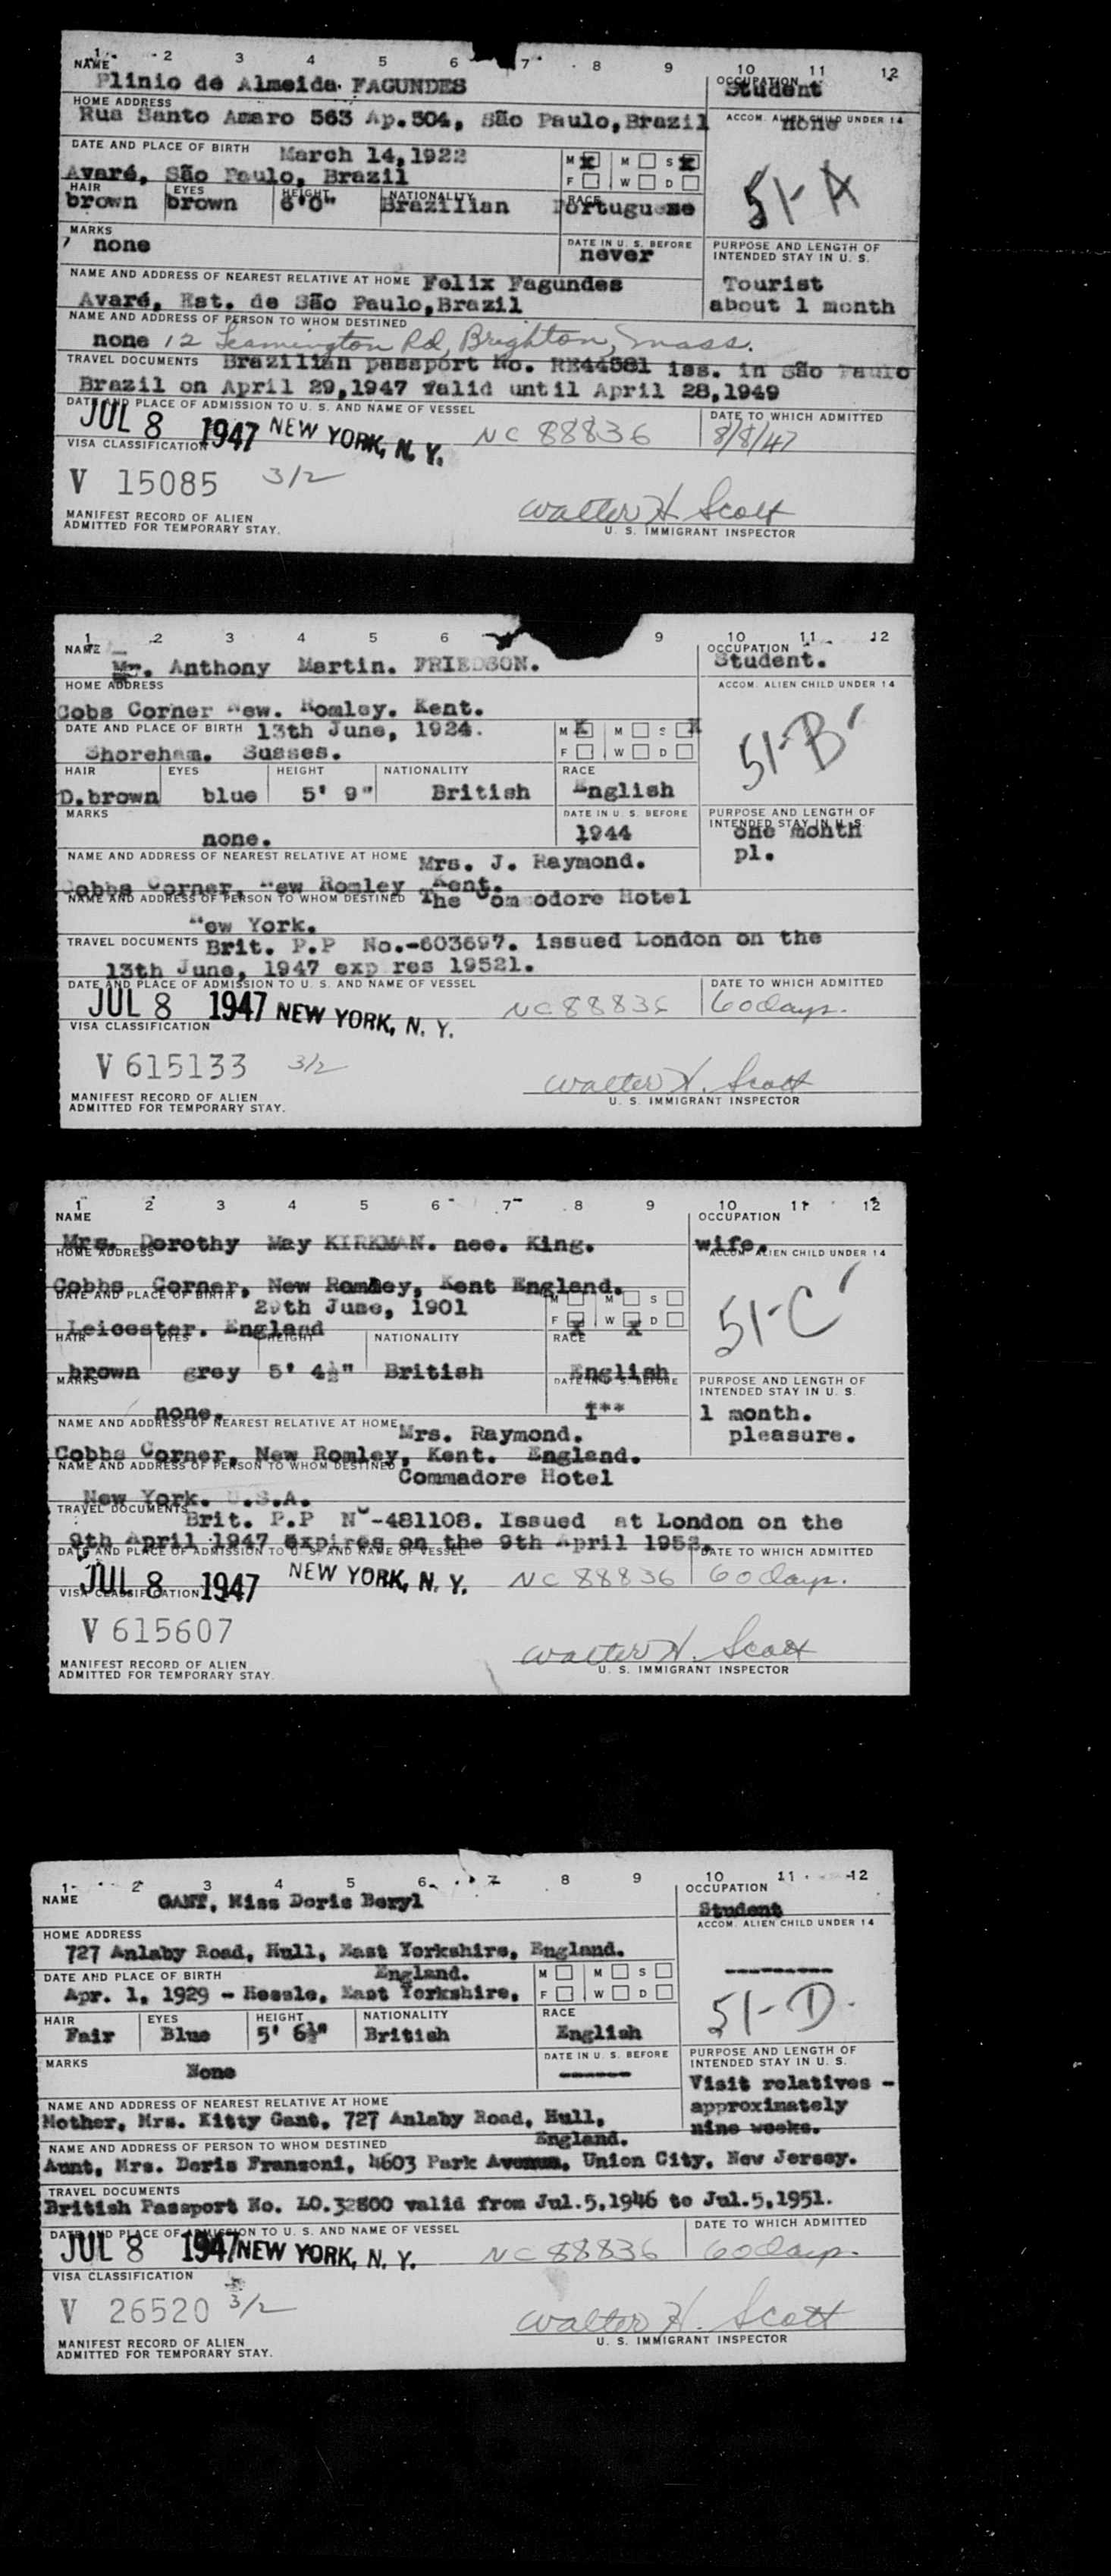 1 2 3 4 5 6 7 8 9 10 11 12
NAME
Plinio de Almeida FAGUNDES
OCCUPATION
Student
HOME ADDRESS
Rua Santo Amaro 563 Ap.504, São Paulo, Brazil
ACCOM. ALIEN CHILD UNDER 14
none
DATE AND PLACE OF BIRTH March 14,1922
Avaré, São Paulo, Brazil
M X M S X
F W D
51-A
HAIR EYES HEIGHT NATIONALITY RACE
brown brown 6'0" Brazilian Portuguese
MARKS
none
DATE IN U. S. BEFORE
never
PURPOSE AND LENGTH OF
INTENDED STAY IN U. S.
Tourist
about 1 month
NAME AND ADDRESS OF NEAREST RELATIVE AT HOME Felix Fagundes
Avaré, Est. de São Paulo,Brazil
NAME AND ADDRESS OF PERSON TO WHOM DESTINED
none 12 Leamington Rd, Brighton, Mass.
TRAVEL DOCUMENTS Brazilian passport No. RE44581 iss. in São Paulo
Brazil on April 29,1947 valid until April 28,1949
DATE AND PLACE OF ADMISSION TO U. S. AND NAME OF VESSEL
JUL 8 1947 NEW YORK, N. Y. NC 88836
DATE TO WHICH ADMITTED
8/8/47
VISA CLASSIFICATION
V 15085 3/2
MANIFEST RECORD OF ALIEN
ADMITTED FOR TEMPORARY STAY.
Walter H Scott
U. S. IMMIGRANT INSPECTOR
1 2 3 4 5 6 9 10 11 12
NAME
Mr. Anthony Martin. FRIEDSON.
OCCUPATION
Student.
HOME ADDRESS
Cobs Corner New. Romley. Kent.
ACCOM. ALIEN CHILD UNDER 14
DATE AND PLACE OF BIRTH 13th June, 1924.
Shoreham. Susses.
M X M S X
F W D
51-B
HAIR EYES HEIGHT NATIONALITY RACE
D.brown blue 5' 9" British English
MARKS
none.
DATE IN U. S. BEFORE
1944
PURPOSE AND LENGTH OF
INTENDED STAY IN U. S.
one month
pl.
NAME AND ADDRESS OF NEAREST RELATIVE AT HOME Mrs. J. Raymond.
Cobbs Corner, New Romley Kent.
NAME AND ADDRESS OF PERSON TO WHOM DESTINED The Commodore Hotel
New York.
TRAVEL DOCUMENTS Brit. P.P No.-603697. issued London on the
13th June, 1947 exp res 19521.
DATE AND PLACE OF ADMISSION TO U. S. AND NAME OF VESSEL
JUL 8 1947 NEW YORK, N. Y. NC 88836
DATE TO WHICH ADMITTED
60 days.
VISA CLASSIFICATION
V 615133 3/2
MANIFEST RECORD OF ALIEN
ADMITTED FOR TEMPORARY STAY.
Walter H. Scott
U. S. IMMIGRANT INSPECTOR
1 2 3 4 5 6 7 8 9 10 11 12
NAME
Mrs. Dorothy May KIRKMAN. nee. King.
OCCUPATION
wife.
HOME ADDRESS
Cobbs Corner, New Romley, Kent England.
ACCOM. ALIEN CHILD UNDER 14
DATE AND PLACE OF BIRTH
29th June, 1901
Leicester. England
M M S
F X W X D
51-C
HAIR EYES HEIGHT NATIONALITY RACE
brown grey 5' 4½" British English
MARKS
none.
DATE IN U. S. BEFORE
1**
PURPOSE AND LENGTH OF
INTENDED STAY IN U. S.
1 month.
pleasure.
NAME AND ADDRESS OF NEAREST RELATIVE AT HOME Mrs. Raymond.
Cobbs Corner, New Romley, Kent. England.
NAME AND ADDRESS OF PERSON TO WHOM DESTINED
Commadore Hotel
New York. U.S.A.
TRAVEL DOCUMENTS
Brit. P.P No-481108. Issued at London on the
9th April 1947 expires on the 9th April 1952.
DATE AND PLACE OF ADMISSION TO U. S. AND NAME OF VESSEL
JUL 8 1947 NEW YORK, N. Y. NC 88836
DATE TO WHICH ADMITTED
60 days.
VISA CLASSIFICATION
V 615607
MANIFEST RECORD OF ALIEN
ADMITTED FOR TEMPORARY STAY.
Walter H. Scott
U. S. IMMIGRANT INSPECTOR
1 2 3 4 5 6 7 8 9 10 11 12
NAME
GANT, Miss Doris Beryl
OCCUPATION
Student
HOME ADDRESS
727 Anlaby Road, Hull, East Yorkshire, England.
ACCOM. ALIEN CHILD UNDER 14
----------
DATE AND PLACE OF BIRTH England.
Apr. 1, 1929 - Hessle, East Yorkshire,
M M S
F W D
51-D.
HAIR EYES HEIGHT NATIONALITY RACE
Fair Blue 5' 6½" British English
MARKS
None
DATE IN U. S. BEFORE
-------
PURPOSE AND LENGTH OF
INTENDED STAY IN U. S.
Visit relatives -
approximately
nine weeks.
NAME AND ADDRESS OF NEAREST RELATIVE AT HOME
Mother, Mrs. Kitty Gant, 727 Anlaby Road, Hull,
England.
NAME AND ADDRESS OF PERSON TO WHOM DESTINED
Aunt, Mrs. Doris Fransoni, 4603 Park Avenue, Union City, New Jersey.
TRAVEL DOCUMENTS
British Passport No. LO.32800 valid from Jul.5,1946 to Jul.5,1951.
DATE AND PLACE OF ADMISSION TO U. S. AND NAME OF VESSEL
JUL 8 1947 NEW YORK, N. Y. NC 88836
DATE TO WHICH ADMITTED
60 days.
VISA CLASSIFICATION
V 26520 3/2
MANIFEST RECORD OF ALIEN
ADMITTED FOR TEMPORARY STAY.
Walter H. Scott
U. S. IMMIGRANT INSPECTOR